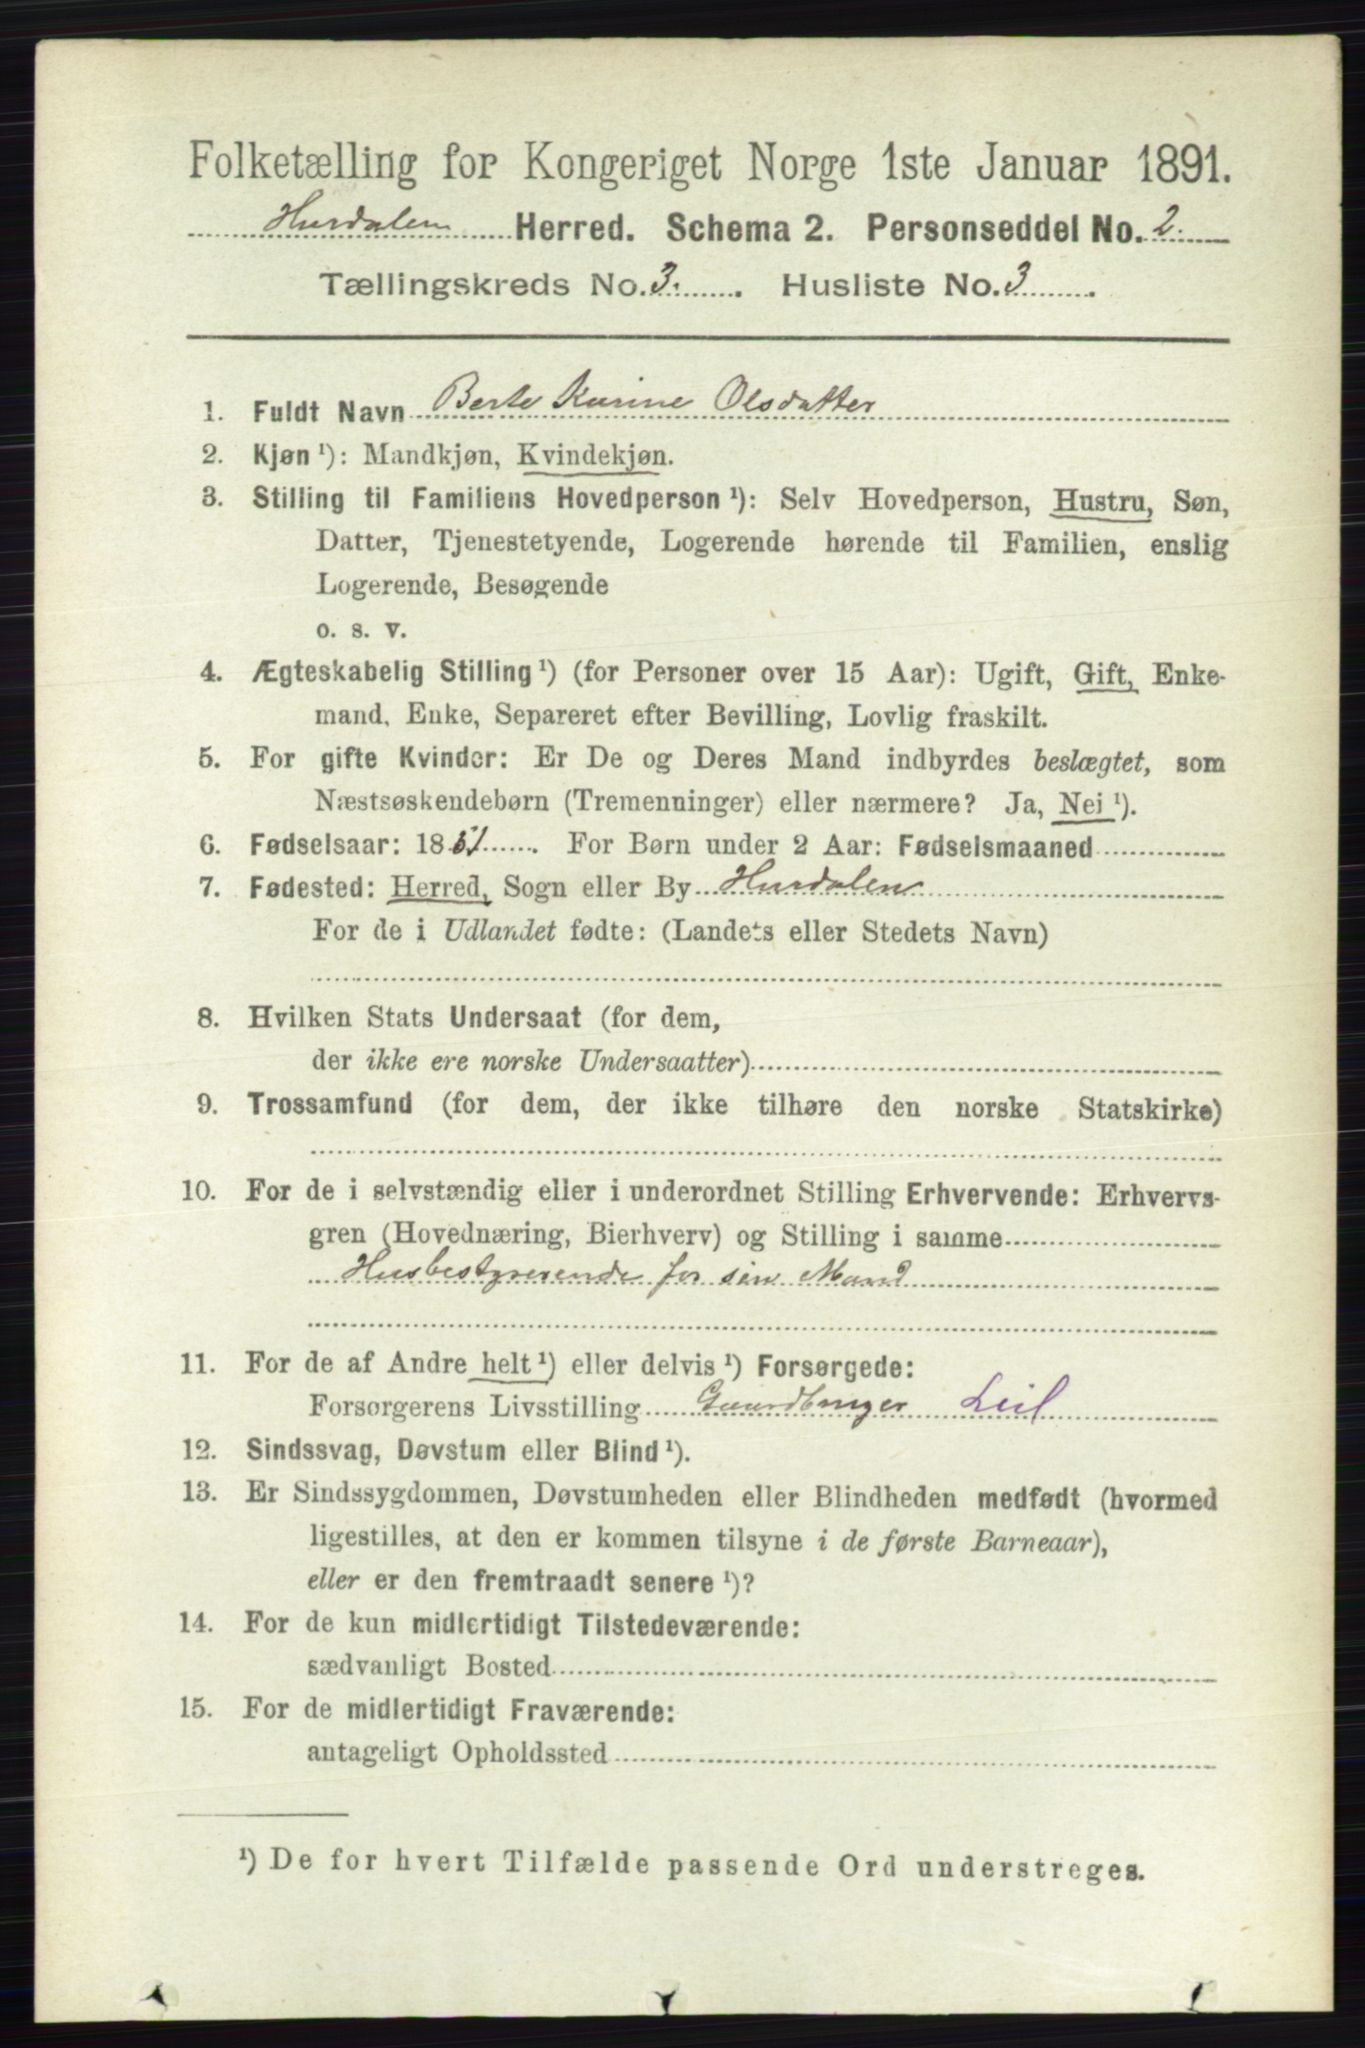 Folketælling for Kongeriget Norge 1ste Januar 1891.
Hurdalen Herred. Schema 2. Personseddel No. 2.
Tællingskreds No. 3. Husliste No. 3
1. Fuldt Navn Berte Karine Olsdatter
2. Kjøn ¹): Mandkjøn, Kvindekjøn.
3. Stilling til Familiens Hovedperson ¹): Selv Hovedperson, Hustru, Søn,
Datter, Tjenestetyende, Logerende hørende til Familien, enslig
Logerende, Besøgende
o. s. v.
4. Ægteskabelig Stilling ¹) (for Personer over 15 Aar): Ugift, Gift, Enke-
mand, Enke, Separeret efter Bevilling, Lovlig fraskilt.
5. For gifte Kvinder: Er De og Deres Mand indbyrdes beslægtet, som
Næstsøskendebørn (Tremenninger) eller nærmere? Ja, Nei ¹).
6. Fødselsaar: 18 . For Børn under 2 Aar: Fødselsmaaned
7. Fødested: Herred, Sogn eller By Hurdalen
For de i Udlandet fødte: (Landets eller Stedets Navn)
8. Hvilken Stats Undersaat (for dem,
der ikke ere norske Undersaatter)
9. Trossamfund (for dem, der ikke tilhøre den norske Statskirke)
10. For de i selvstændig eller i underordnet Stilling Erhvervende: Erhvervs-
gren (Hovednæring, Bierhverv) og Stilling i samme
Husbestyrerende for sin Mand
11. For de af Andre helt ¹) eller delvis ¹) Forsørgede:
Forsørgerens Livsstilling Gaardbruger Leil
12. Sindssvag, Døvstum eller Blind ¹).
13. Er Sindssygdommen, Døvstumheden eller Blindheden medfødt (hvormed
ligestilles, at den er kommen tilsyne i de første Barneaar),
eller er den fremtraadt senere ¹)?
14. For de kun midlertidigt Tilstedeværende:
sædvanligt Bosted
15. For de midlertidigt Fraværende:
antageligt Opholdssted
¹) De for hvert Tilfælde passende Ord understreges.